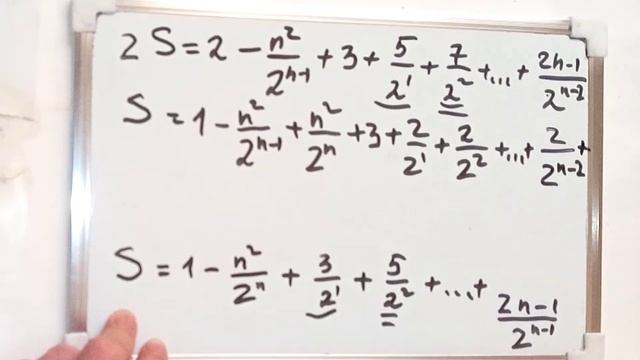 2 S = 2 - n²/2ⁿ⁻¹ + 3 + 5/2¹ + 7/2² + ... + 2n-1/2ⁿ⁻²
S = 1 - n²/2ⁿ⁻¹ + n²/2ⁿ + 3 + 2/2¹ + 2/2² + ... + 2/2ⁿ⁻² +
S = 1 - n²/2ⁿ + 3/2¹ + 5/2² + ... + 2n-1/2ⁿ⁻¹